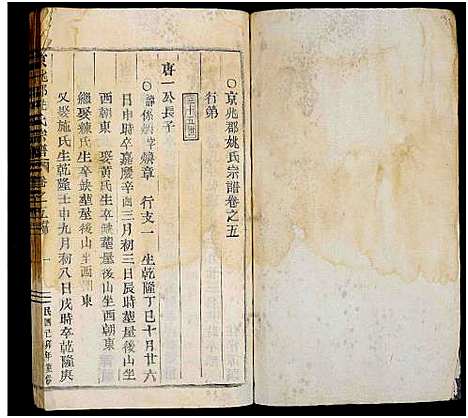 ○京兆郡姚氏宗譜卷之五
行第
三十五世
唐一公長子
○諱係炳字麟章 行支一 生乾隆丁巳十月廿六
日申時卒嘉慶辛酉三月初三日辰時塟屋後山坐
西朝東 娶黃氏生卒缺塟屋後山坐西朝東
繼娶練氏生卒缺塟屋後山坐西朝東
又娶施氏生乾隆壬申九月初八日戌時卒乾隆庚
京兆郡姚氏宗譜 卷之五 一